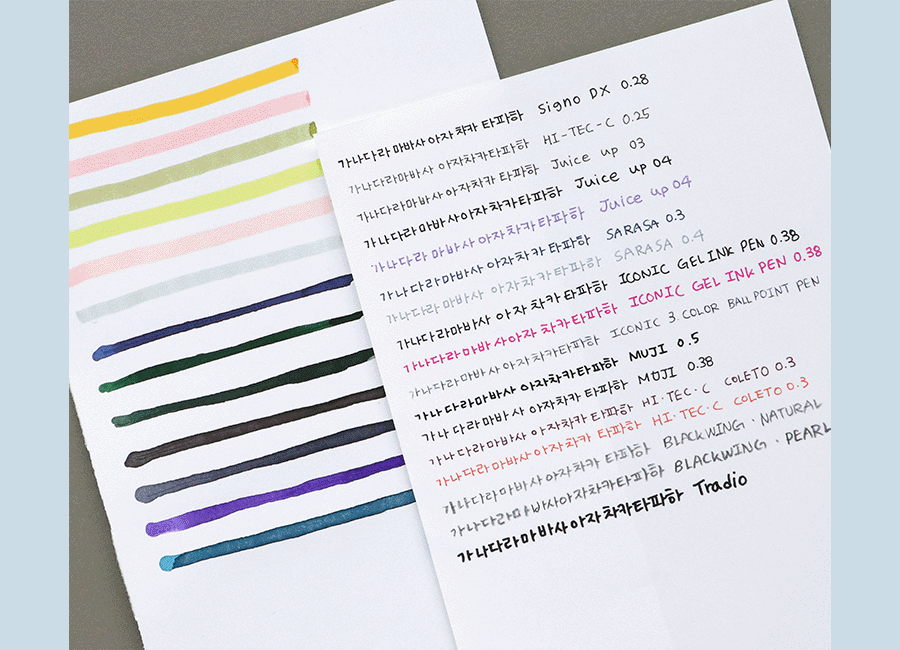 가나다라마바사아자차카타파하 Signo DX 0.28
가나다라마바사 아자차카타파하 HI-TEC-C 0.25
가나다라마바사아자차카타파하 Juice up 03
가나다라마바사아자차카타파하 Juice up 04
가나다라마바사아자차카타파하 Juice up 04
가나다라마바사아자차카타파하 SARASA 0.3
가나다라마바사 아자차카타파하 SARASA 0.4
가나다라마바사 아자차카타파하 ICONIC GEL INK PEN 0.38
가나다라마바사아자차카타파하 ICONIC GEL INK PEN 0.38
가나다라마바사아자차카타파하 ICONIC 3 COLOR BALLPOINT PEN
가나다라마바사 아자차카타파하 MUJI 0.5
가나다라마바사아자차카타파하 MUJI 0.38
가나다라마바사아자차카타파하 HI·TEC·C COLETO 0.3
가나다라마바사아자차카타파하 HI·TEC·C COLETO 0.3
가나다라마바사아자차카타파하 BLACKWING · NATURAL
가나다라마바사아자차카타파하 BLACKWING · PEARL
가나다라마바사아자차카타파하 Tradio